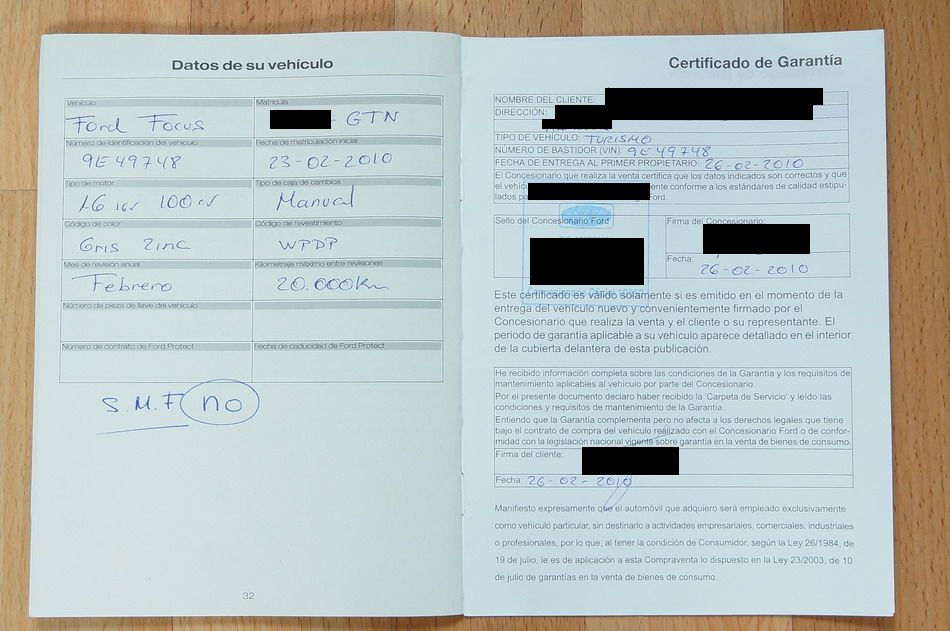 Datos de su vehículo
Vehículo
Matrícula
Ford Focus
- GTN
Número de identificación del vehículo
Fecha de matriculación inicial
9E49748
23-02-2010
Tipo de motor
Tipo de caja de cambios
1.6 100 cv
Manual
Código de color
Código de revestimiento
Gris zinc
WPDP
Mes de revisión anual
Kilometraje máximo entre revisiones
Febrero
20.000Km
Número de pieza de llave del vehículo
Número de contrato de Ford Protect
Fecha de caducidad de Ford Protect
S.M.F no
32
Certificado de Garantía
NOMBRE DEL CLIENTE:
DIRECCIÓN:
TIPO DE VEHÍCULO: TURISMO
NÚMERO DE BASTIDOR (VIN): 9E49748
FECHA DE ENTREGA AL PRIMER PROPIETARIO: 26-02-2010
El Concesionario que realiza la venta certifica que los datos indicados son correctos y que
el conforme a los estándares de calidad estipu-
lados Ford.
Sello del Concesionario Ford
Firma del Concesionario:
Fecha:
26-02-2010
Este certificado es válido solamente si es emitido en el momento de la
entrega del vehículo nuevo y convenientemente firmado por el
Concesionario que realiza la venta y el cliente o su representante. El
periodo de garantía aplicable a su vehículo aparece detallado en el interior
de la cubierta delantera de esta publicación.
He recibido información completa sobre las condiciones de la Garantía y los requisitos de
mantenimiento aplicables al vehículo por parte del Concesionario.
Por el presente documento declaro haber recibido la 'Carpeta de Servicio' y leído las
condiciones y requisitos de mantenimiento de la Garantía.
Entiendo que la Garantía complementa pero no afecta a los derechos legales que tiene
bajo el contrato de compra del vehículo realizado con el Concesionario Ford o de confor-
midad con la legislación nacional vigente sobre garantía en la venta de bienes de consumo.
Firma del cliente:
Fecha: 26-02-2010
Manifiesto expresamente que el automóvil que adquiero será empleado exclusivamente
como vehículo particular, sin destinarlo a actividades empresariales, comerciales, industriales
o profesionales, por lo que, al tener la condición de Consumidor, según la Ley 26/1984, de
19 de julio, le es de aplicación a esta Compraventa lo dispuesto en la Ley 23/2003, de 10
de julio de garantías en la venta de bienes de consumo.